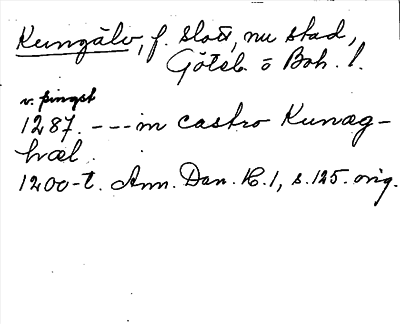 Kungälv, f. slott, nu stad,
Göteb. o Boh. l.
v. þingst
1287. --- in castro Kunæg-
hæl.
1200-t. Ann. Dan. H. 1, s. 125. orig.